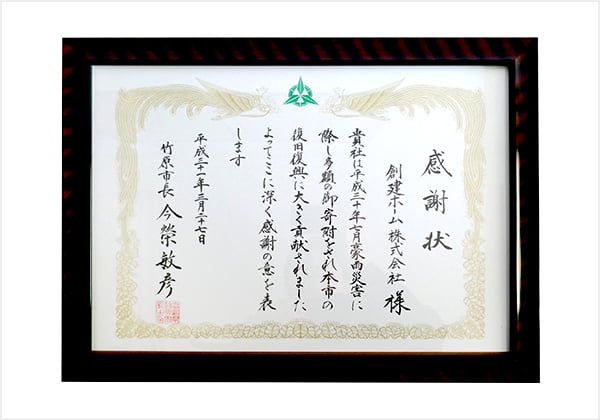 感謝状
創建ホーム株式会社 様
貴社は平成三十年七月豪雨災害に
際し多額の御寄附をされ本市の
復旧復興に大きく貢献されました
よってここに深く感謝の意を表
します
平成三十一年三月二十七日
竹原市長 今榮敏彦